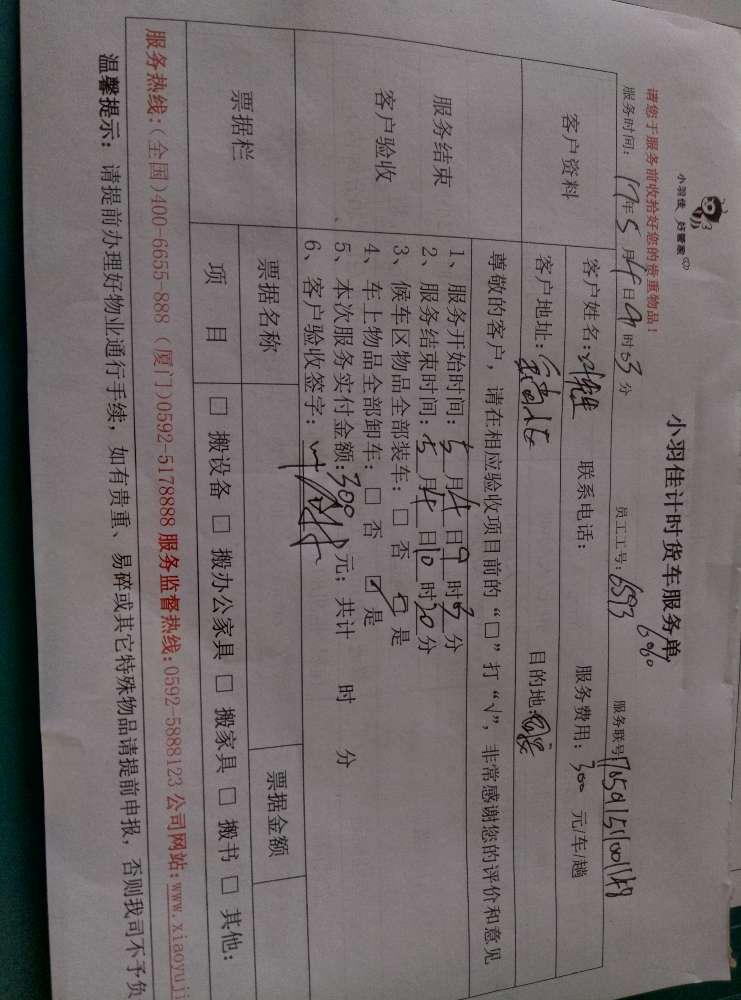 小羽佳 好管家
小羽佳计时货车服务单
请您于服务前收拾好您的贵重物品!
服务时间: 17年5月4日9时53分 员工工号: 6593 服务联号
客户资料
客户姓名: 联系电话: 服务费用: 300 元/车/趟
客户地址: 目的地:
尊敬的客户,请在相应验收项目前的“□”打“√”,非常感谢您的评价和意见
服务结束
客户验收
1、服务开始时间: 5月4日9时 分
2、服务结束时间: 5月4日10时30分
3、候车区物品全部装车: □ 否 □ 是
4、车上物品全部卸车: □ 否 ☑ 是
5、本次服务实付金额: 300 元; 共计 时 分
6、客户验收签字:
票据栏
票据名称 票据金额
项 目 □ 搬设备 □ 搬办公家具 □ 搬家具 □ 搬书 □ 其他:
服务热线:(全国)400-6655-888 (厦门)0592-5178888 服务监督热线:0592-5888123 公司网站:www.xiaoyuji
温馨提示: 请提前办理好物业通行手续,如有贵重、易碎或其它特殊物品请提前申报,否则我司不予负